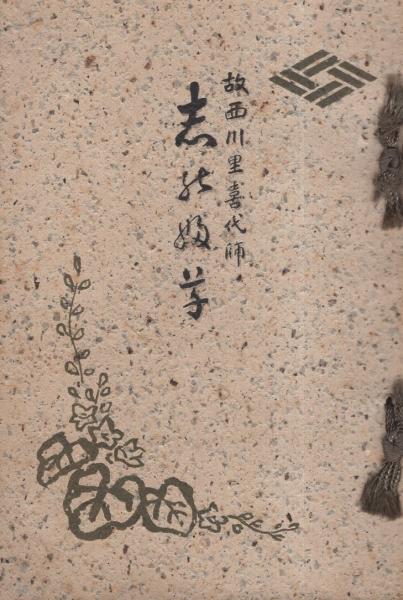 故西川里喜代師
志能婦草